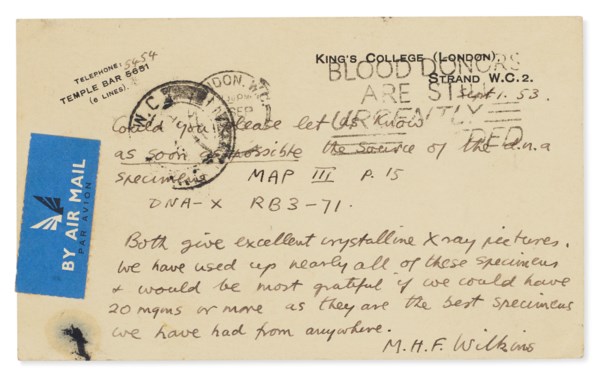 TELEPHONE: 5454
TEMPLE BAR 5651
(6 LINES).
KING'S COLLEGE (LONDON)
STRAND W.C.2.
LONDON, W.C.
BLOOD DONORS
ARE STILL
URGENTLY
Sept 1. 53.
Could you please let us know
as soon as possible the source of the d.n.a
specimens MAP III P. 15
DNA-X RB3-71.
Both give excellent crystalline X ray pictures.
We have used up nearly all of these specimens
& would be most grateful if we could have
20 mgms or more as they are the best specimens
we have had from anywhere.
M.H.F. Wilkins
BY AIR MAIL
PAR AVION